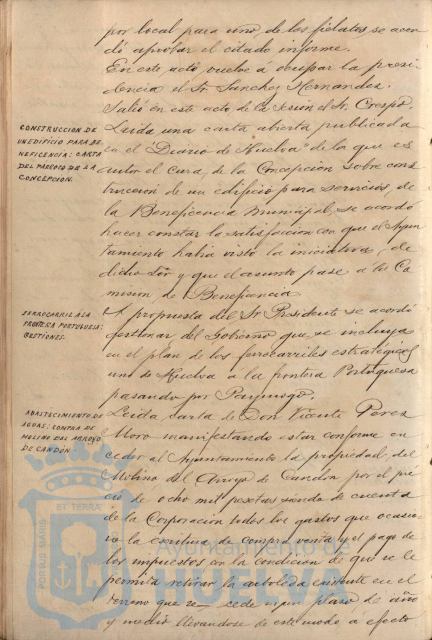 por local para uno de los fielatos se acor
dó aprobar el citado informe.
En este acto vuelve á ocupar la presi
dencia el Sr. Sanchez Hernandez.
Salió en este acto de la sesion el Sr. Crespo.
CONSTRUCCION DE
UN EDIFICIO PARA BE
NEFICENCIA: CARTA
DEL PARROCO DE LA
CONCEPCION.
Leida una carta abierta publicada
en el Diario de Huelva de la que es
autor el cura de la Concepcion sobre cons
truccion de un edificio para servicios de
la Beneficencia Municipal, se acordó
hacer constar la satisfaccion con que el Ayun
tamiento habia visto la iniciativa de
dicho Sor y que el asunto pase a la Co
mision de Beneficencia.
FERROCARRIL A LA
FRONTERA PORTUGUESA:
GESTIONES.
A propuesta del Sr. Presidente se acordó
gestionar del Gobierno que se incluya
en el plan de los ferrocarriles estratégicos
uno de Huelva a la frontera Portuguesa
pasando por Paymogo.
ABASTECIMIENTO DE
AGUAS: COMPRA DE
MOLINO DEL ARROYO
DE CANDON.
Leida carta de Don Vicente Perez
Moro manifestando estar conforme en
ceder al Ayuntamiento la propiedad del
Molino del Arroyo de Candon por el pre
cio de ocho mil pesetas siendo de cuenta
de la Corporacion todos los gastos que ocasio
ne la escritura de compra venta y el pago de
los impuestos con la condicion de que se le
permita retirar la arboleda existente en el
terreno que se cede en un plazo de año
y medio llevandose de este modo a efecto
PORTUS MARIS
ET TERRAE
Ayuntamiento de
HUELVA